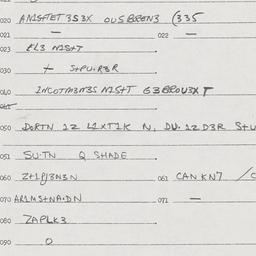 020 AN1SFTET 3S3X OUSBREN3 (335
021 — 022 —
023 EL3 N1S+T
030 + S+PU.R3R
040 INCOTM3M3S N1S+T G3BROU3XT
045
050 DORTN 1Z L1XT1K N, DU.1Z D3R S+U
051 SU.TN Q SHADE
060 Z+1PJ3N3N 061 CAN KN7 /C
070 AR1MS+NA.DN 071 —
080 ZAPLK3
090 O